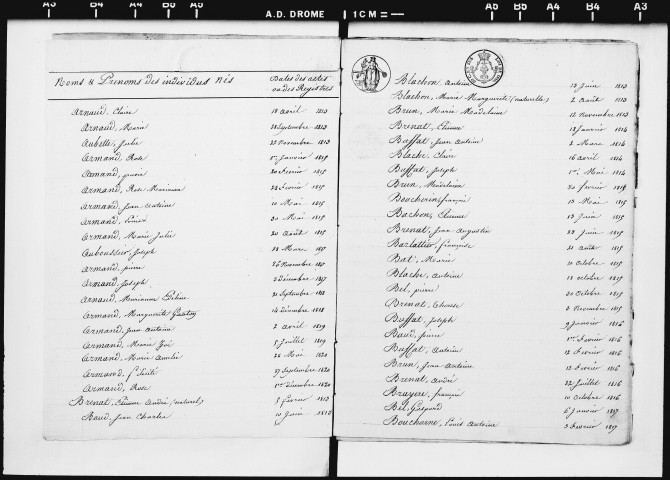 A3 B4 A4 B5 A5 A.D. DROME 1 CM = A5 B5 A4 B4 A3
Noms & Prenoms des individus nés Dates des actes
ou des Registres
Arnaud, Claire 18 avril 1813
Arnaud, Marie 28 Septembre 1813
Aubette, Julie 22 Novembre 1813
Armand, Rose 1er Janvier 1815
Armand, 20 fevrier 1815
Armand, Rose Marianne 28 Fevrier 1815
Armand, Jean Antoine 10 Mai 1815
Armand, Louise 30 Mai 1815
Armand, Marie Julie 20 Août 1815
Auboussier, Joseph 28 Mars 1817
Armand, pierre 26 Novembre 1817
Armand, Joseph 2 décembre 1817
Arnaud, Marianne Céline 21 Septembre 1818
Armand, Marguerite 14 Décembre 1818
Armand, Jean Antoine 2 avril 1819
Armand, Marie Zoé 5 Juillet 1819
Armand, Marie 26 Mai 1820
Armand, 27 Septembre 1820
Armand, Rose 1er Décembre 1820
Brenat, Etienne André (naturel) 5 fevrier 1813
Baud, Jean Charles 10 Juin 1813
Blachon, Antoine 13 Juin 1813
Blachon, Marie Marguerite (naturelle) 2 Août 1813
Brun, Marie Madelaine 12 Novembre 1813
Brenat, Etienne 13 Janvier 1814
Buffat, Jean Antoine 2 Mars 1814
Blache, Claire 16 avril 1814
Buffat, Joseph 1er Mai 1814
Brun, Madelaine 20 fevrier 1815
Boucherin, françois 13 Mai 1815
Bachon, Etienne 13 Juin 1815
Brenat, Jean Augustin 28 Juin 1815
Barlatier, françoise 31 Août 1815
Bat, Marie 11 Octobre 1815
Blache, Antoine 18 octobre 1815
Bel, pierre 30 Octobre 1815
Brenat, Therese 3 Novembre 1815
Buffat, Joseph 9 Janvier 1816
Baud, pierre 1er Fevrier 1816
Buffat, Antoine 12 Fevrier 1816
Brun, Jean Antoine 12 Fevrier 1816
Brenat, André 22 Juillet 1816
Bruyere, françois 10 Octobre 1816
Bel, Gaspard 6 Janvier 1817
Boucharne, Louis Antoine 3 Fevrier 1817